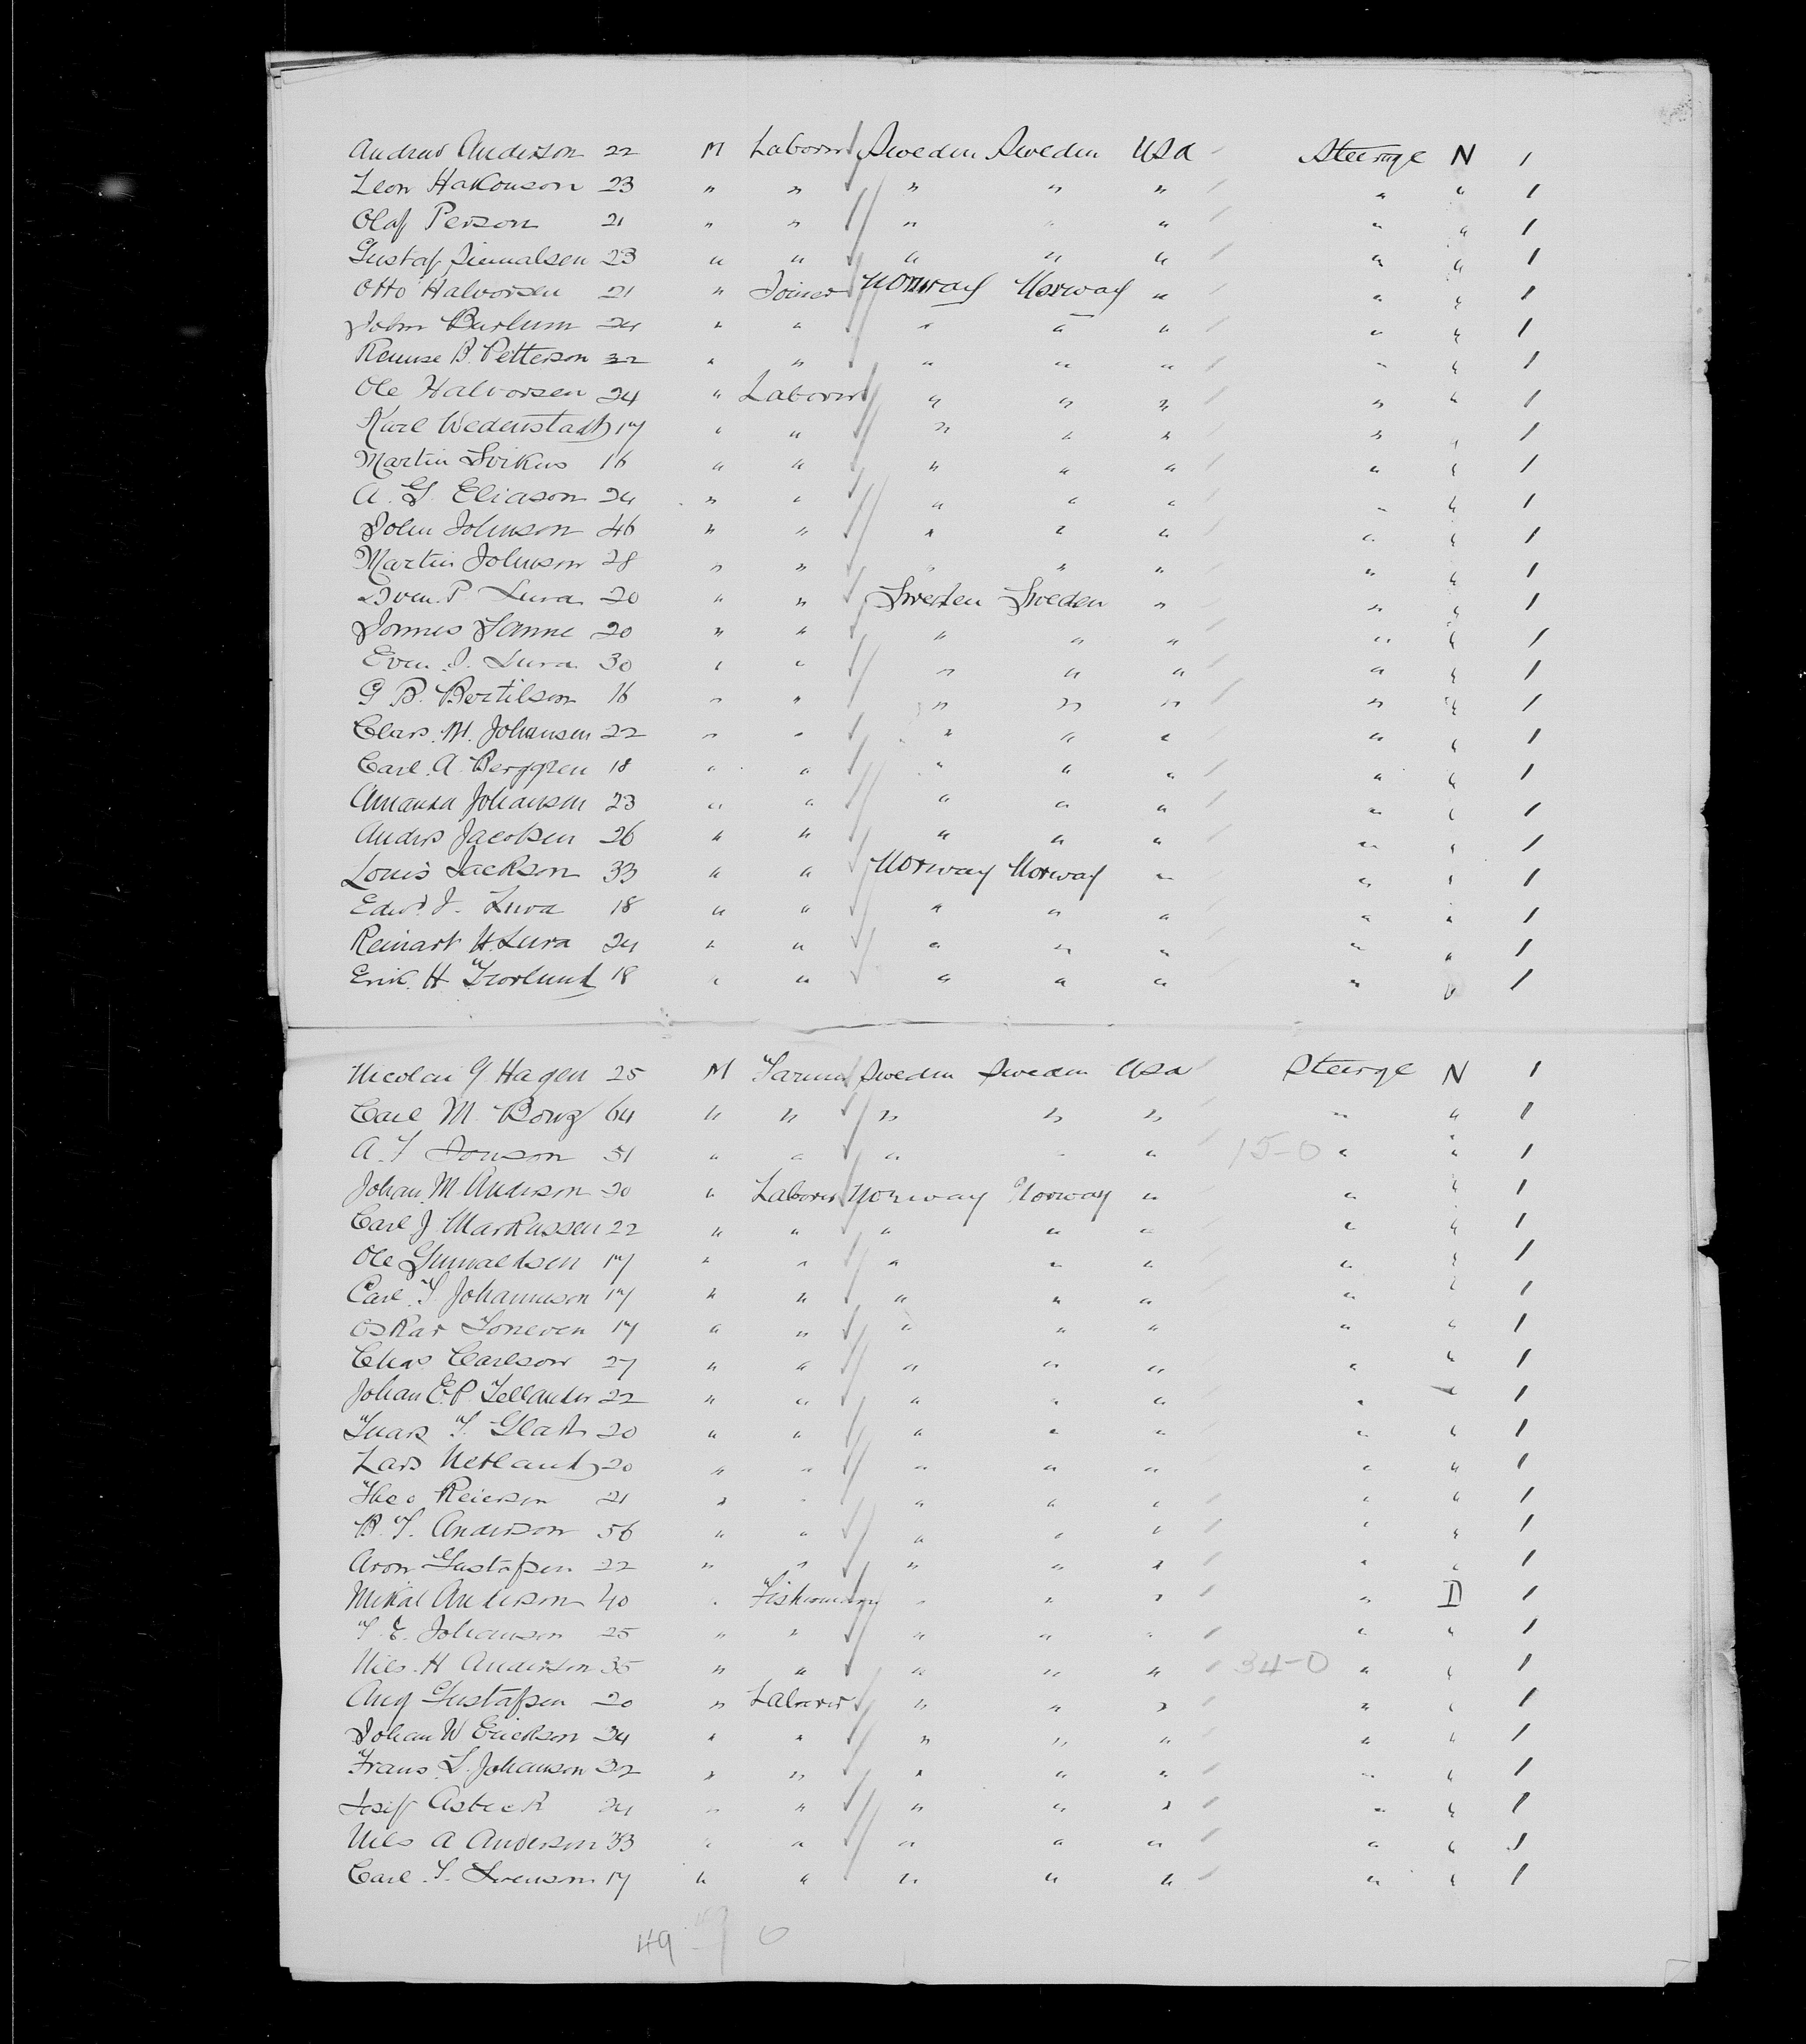 Andrew Anderson 22 M Laborer Sweden Sweden USA Steerage N 1
Leon Hakonson 23 " " " " " " " 1
Olaf Person 21 " " " " " " " 1
Gustaf 23 " " " " " " " 1
Otto Halvorsen 21 " Joiner Norway Norway " " " 1
John Barlum 24 " " " " " " " 1
B. Petterson 32 " " " " " " " 1
Ole Halvorsen 24 " Laborer " " " " " 1
Karl Wedenstadt 17 " " " " " " " 1
Martin 16 " " " " " " " 1
A. G. Eliason 24 " " " " " " " 1
John Johnson 46 " " " " " " " 1
Martin Johnson 28 " " " " " " " 1
Sven. P. Lura 20 " " Sweden Sweden " " " 1
20 " " " " " " " 1
Even. J. Lura 30 " " " " " " " 1
G B. Bertilson 16 " " " " " " " 1
Clas. M. Johansen 22 " " " " " " " 1
Carl. A. Berggren 18 " " " " " " " 1
Amanda Johanson 23 " " " " " " " 1
Andrs Jacobsen 26 " " " " " " " 1
Louis Jackson 33 " " Norway Norway " " " 1
Edwd. J. Lura 18 " " " " " " " 1
Reinart H. Lura 24 " " " " " " " 1
Erik. H 18 " " " " " " " 1
Nicolai G Hagen 25 M Farmer Sweden Sweden USA Steerge N 1
Carl M. 64 " " " " " " " 1
A. F Jonson 51 " " " " " 15-0 " " 1
Johan. M. Anderson 20 " Laborer Norway Norway " " " 1
Carl J Markussen 22 " " " " " " " 1
Ole Gunnaldsen 17 " " " " " " " 1
Carl. F. Johanneson 17 " " " " " " " 1
Oskar 17 " " " " " " " 1
Chas Carlson 27 " " " " " " " 1
Johan E. P. Tellander 22 " " " " " " " 1
20 " " " " " " " 1
Lars Netland 20 " " " " " " " 1
Theo Reierson 21 " " " " " " " 1
B. F. Anderson 56 " " " " " " " 1
Aron Gustafsen 22 " " " " " " " 1
Mikal Anderson 40 " Fisherman " " " " D 1
F. E. Johanson 25 " " " " " " " 1
Nils. H Anderson 35 " " " " " 34-0 " " 1
Aug Gustafsen 20 " Laborer " " " " " 1
Johan W Erickson 34 " " " " " " " 1
Frans L. Johanson 32 " " " " " " " 1
Asbeck 24 " " " " " " " 1
Nils A Anderson 33 " " " " " " " 1
Carl. F. Svenson 17 " " " " " " " 1
49 0